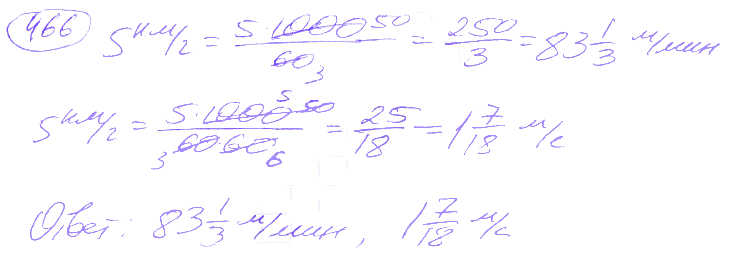 466 5 км/г = 5·1000 50 / 60 3 = 250/3 = 83 1/3 м/мин
5 км/г = 5·1000 5 50 / 3 60·60 6 = 25/18 = 1 7/18 м/с
Ответ: 83 1/3 м/мин, 1 7/18 м/с